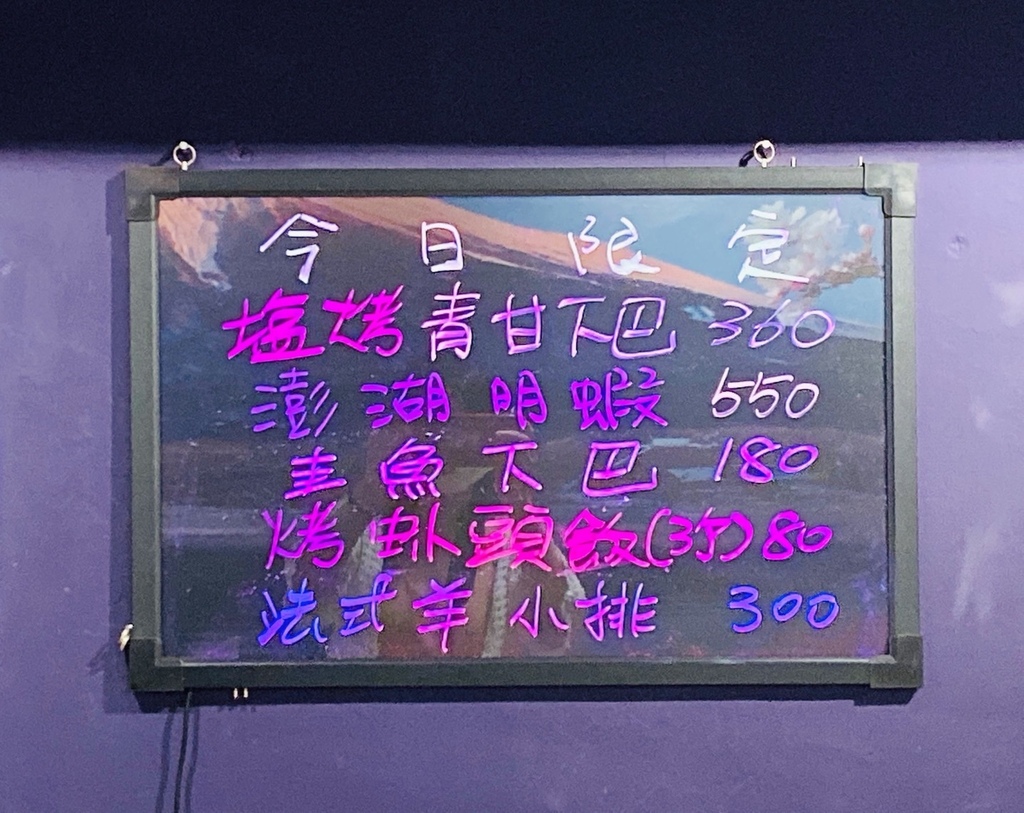 今日限定
塩烤青甘下巴 360
澎湖明蝦 550
青魚下巴 180
烤虾頭飯(3尔) 80
法式羊小排 300